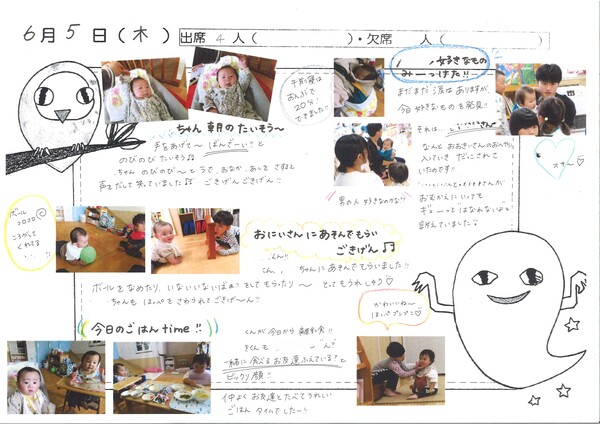 6月5日(木)
出席 4人( )・欠席 人( )
好きなもの
みーっけた!!
まだまだ涙はありますが、
今好きなものを発見
それは…
なんとおおきいさんのおへやに
入っていき だっこされて
いたのです!!
ギューってはなれないよと
訴えていました
スキ〜
午前寝は
おんぶで
20分
できました
ちゃん 朝のたいそう〜
声をあげて〜 ばんざーい と
のびのびたいそう
ちゃん のびのび〜
声をだして笑っていました
ごきげんごきげん!!
男の人好きなのかな?
ボール
コロコロ
ころがして
くれてる
おにいさんにあそんでもらい
ごきげん
ちゃんにあそんでもらいました!!
ボールをなめたり、いないいないばぁをしてもらったり〜 とてもうれしそう
ちゃんも ほっぺをさわられてごきげーん!!
かわいいね〜
ほっぺプニプニ
今日のごはんtime!!
くんが今日から離乳食!!
一緒に食べるお友達ふえている?と
ビックリ顔!!
仲よくお友達とたべてうれしい
ごはんタイムでしたー!!